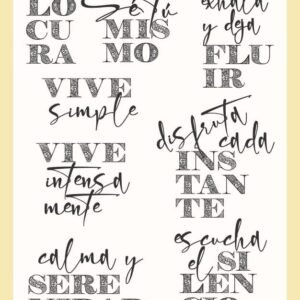 LO
CU
RA
Sé tú
MIS
MO
exhala
y deja
FLU
IR
VIVE
simple
VIVE
intensa
mente
disfruta
cada
INS
TAN
TE
calma y
SERE
NIDAD
escucha
el SI
LEN
CIO